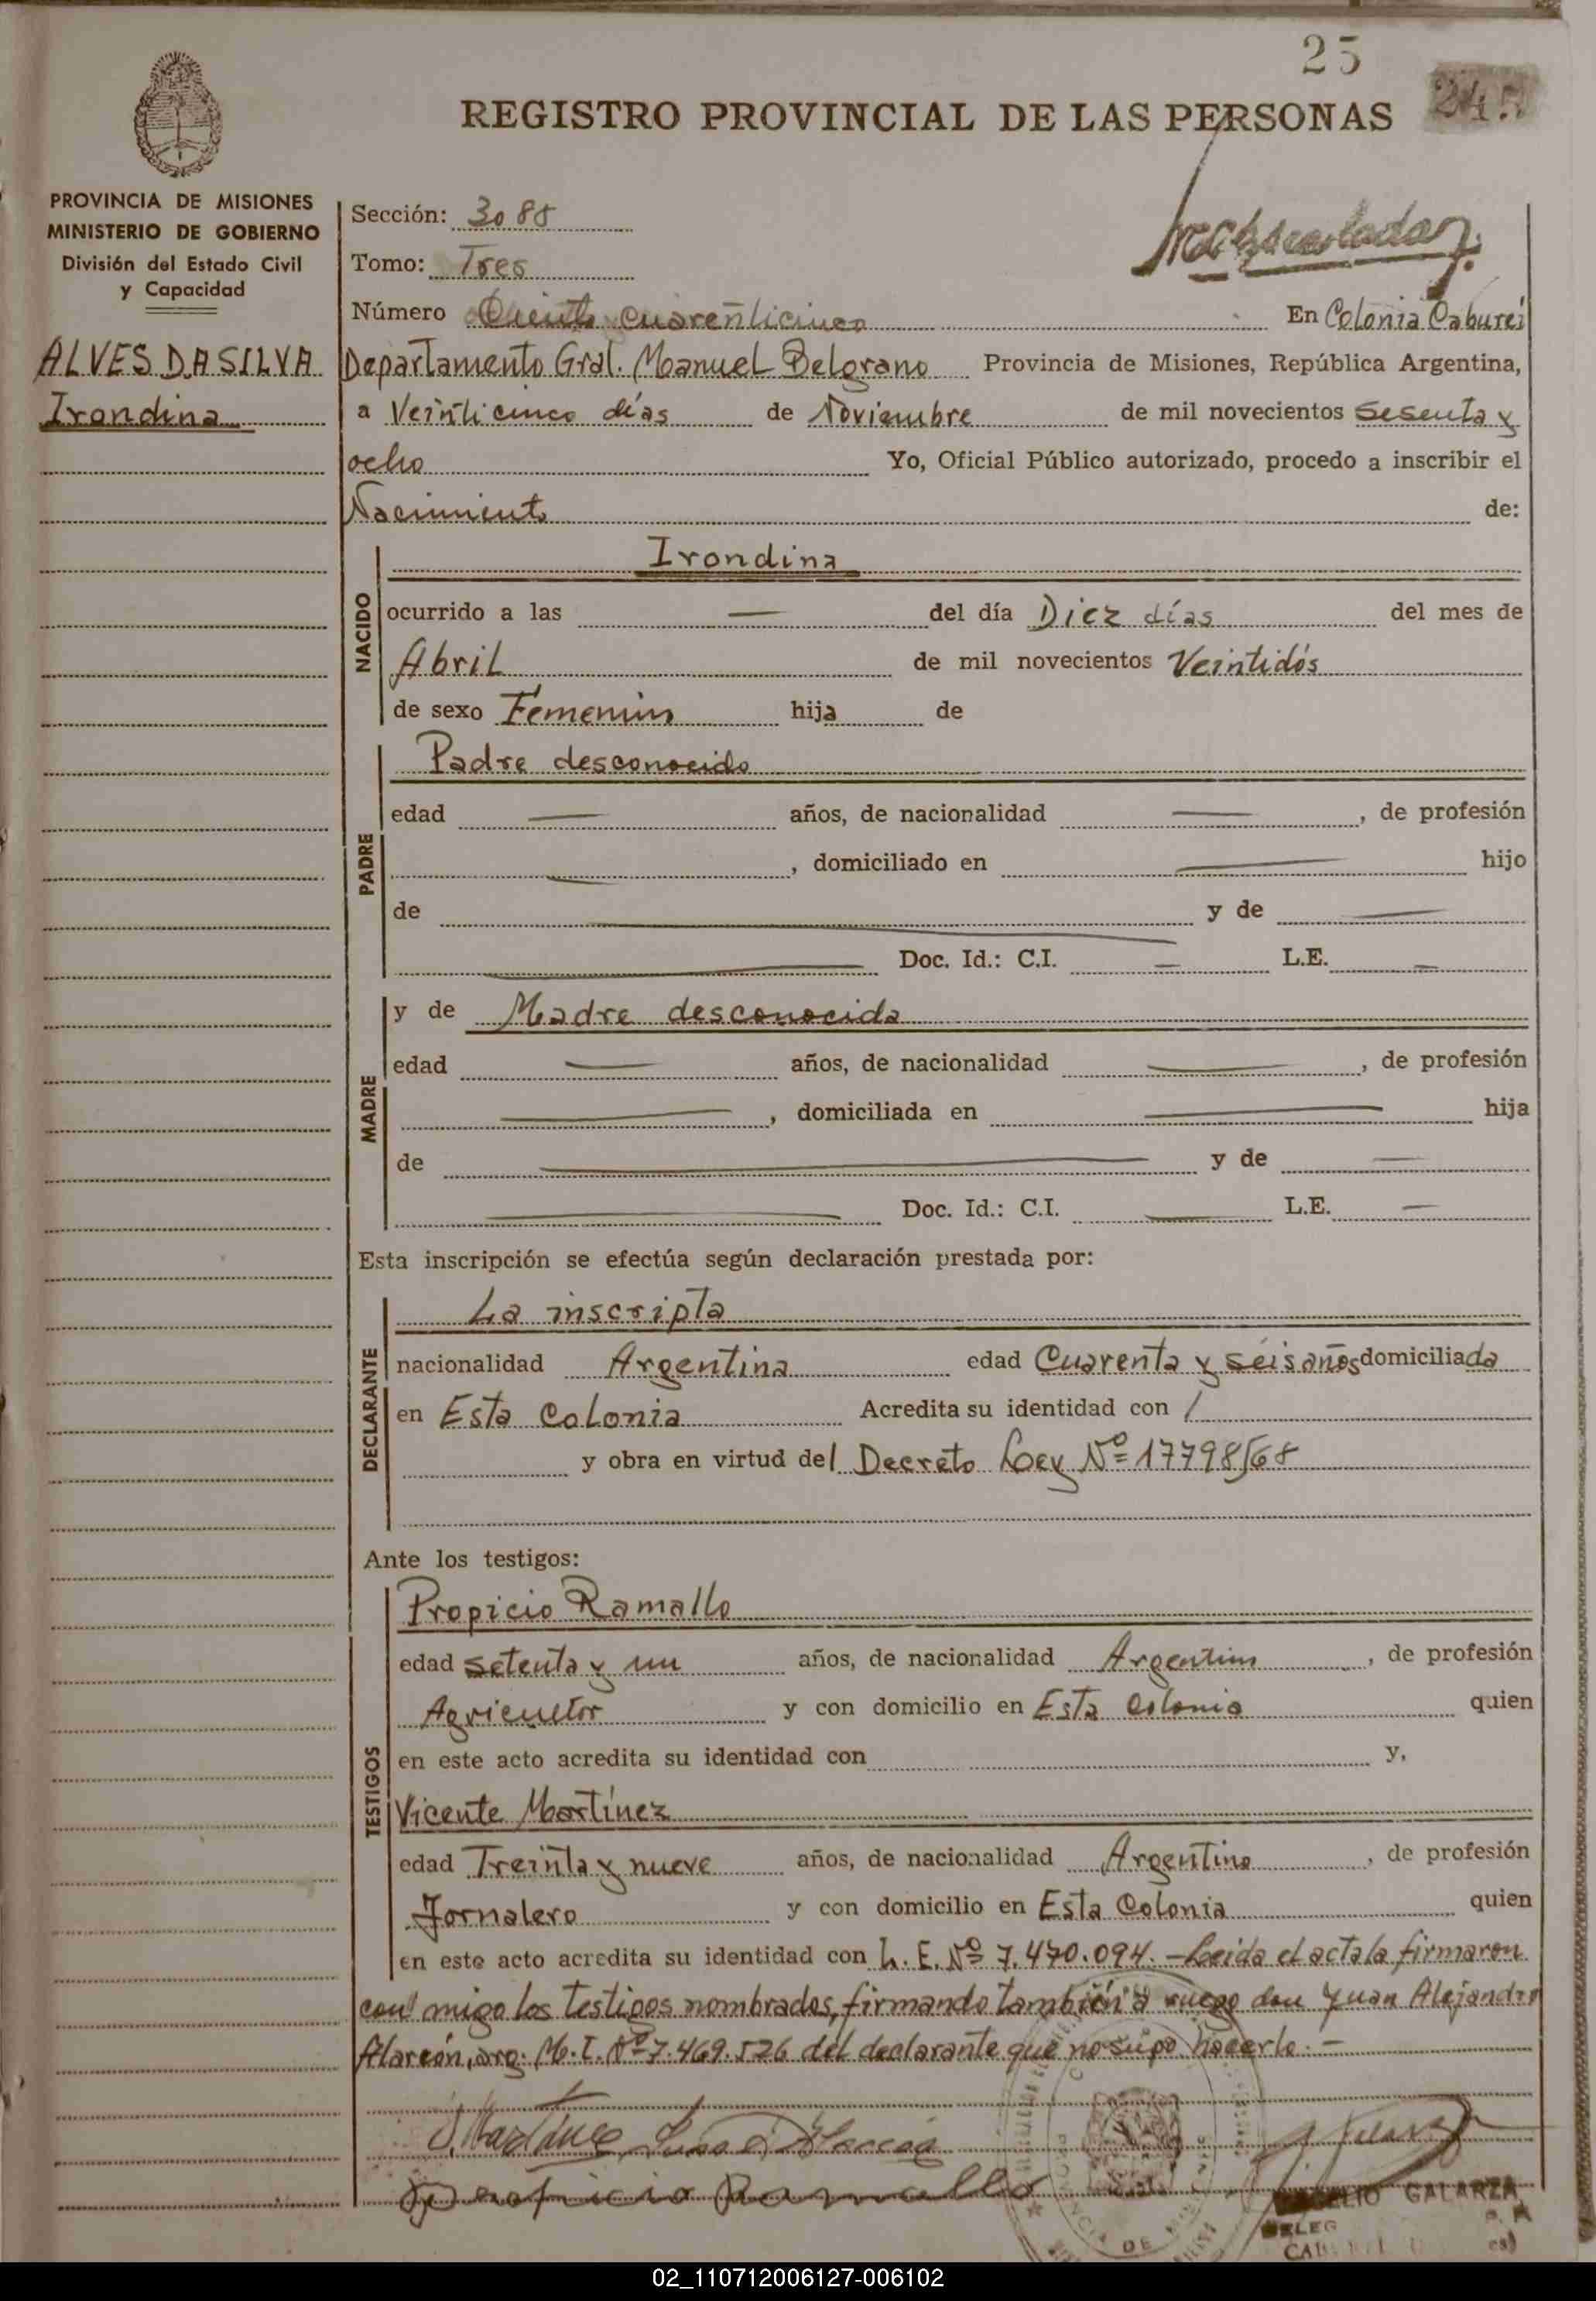 25
245
REGISTRO PROVINCIAL DE LAS PERSONAS
PROVINCIA DE MISIONES
MINISTERIO DE GOBIERNO
División del Estado Civil
y Capacidad
ALVES DA SILVA
Irondina
Sección: 3088
Tomo: Tres
Número cuarenticinco En Colonia Caburei
Departamento Gral. Manuel Belgrano Provincia de Misiones, República Argentina,
a Veinticinco días de Noviembre de mil novecientos sesenta y
ocho Yo, Oficial Público autorizado, procedo a inscribir el
Nacimiento de:
NACIDO
Irondina
ocurrido a las — del día Diez días del mes de
Abril de mil novecientos Veintidós
de sexo Femenino hija de
PADRE
Padre desconocido
edad — años, de nacionalidad —, de profesión
—, domiciliado en — hijo
de — y de —
— Doc. Id.: C.I. — L.E. —
MADRE
y de Madre desconocida
edad — años, de nacionalidad —, de profesión
—, domiciliada en — hija
de — y de —
— Doc. Id.: C.I. — L.E. —
Esta inscripción se efectúa según declaración prestada por:
DECLARANTE
La inscripta
nacionalidad Argentina edad Cuarenta y seis años domiciliada
en Esta Colonia Acredita su identidad con /
y obra en virtud del Decreto Ley Nº 17798/68
Ante los testigos:
TESTIGOS
Propicio Ramallo
edad setenta y un años, de nacionalidad Argentino, de profesión
Agricultor y con domicilio en Esta Colonia quien
en este acto acredita su identidad con y,
Vicente Martínez
edad Treinta y nueve años, de nacionalidad Argentino, de profesión
Jornalero y con domicilio en Esta Colonia quien
en este acto acredita su identidad con L. E. Nº 7.470.094. — Leida el acta la firmaron
con migo los testigos nombrados, firmando también a ruego don Juan Alejandro
Alarcón, arg. M. I. Nº 7.469.526 del declarante que no supo hacerlo. —
V. Martínez
Propicio Ramallo
GALARZA
DELEG
02_110712006127-006102